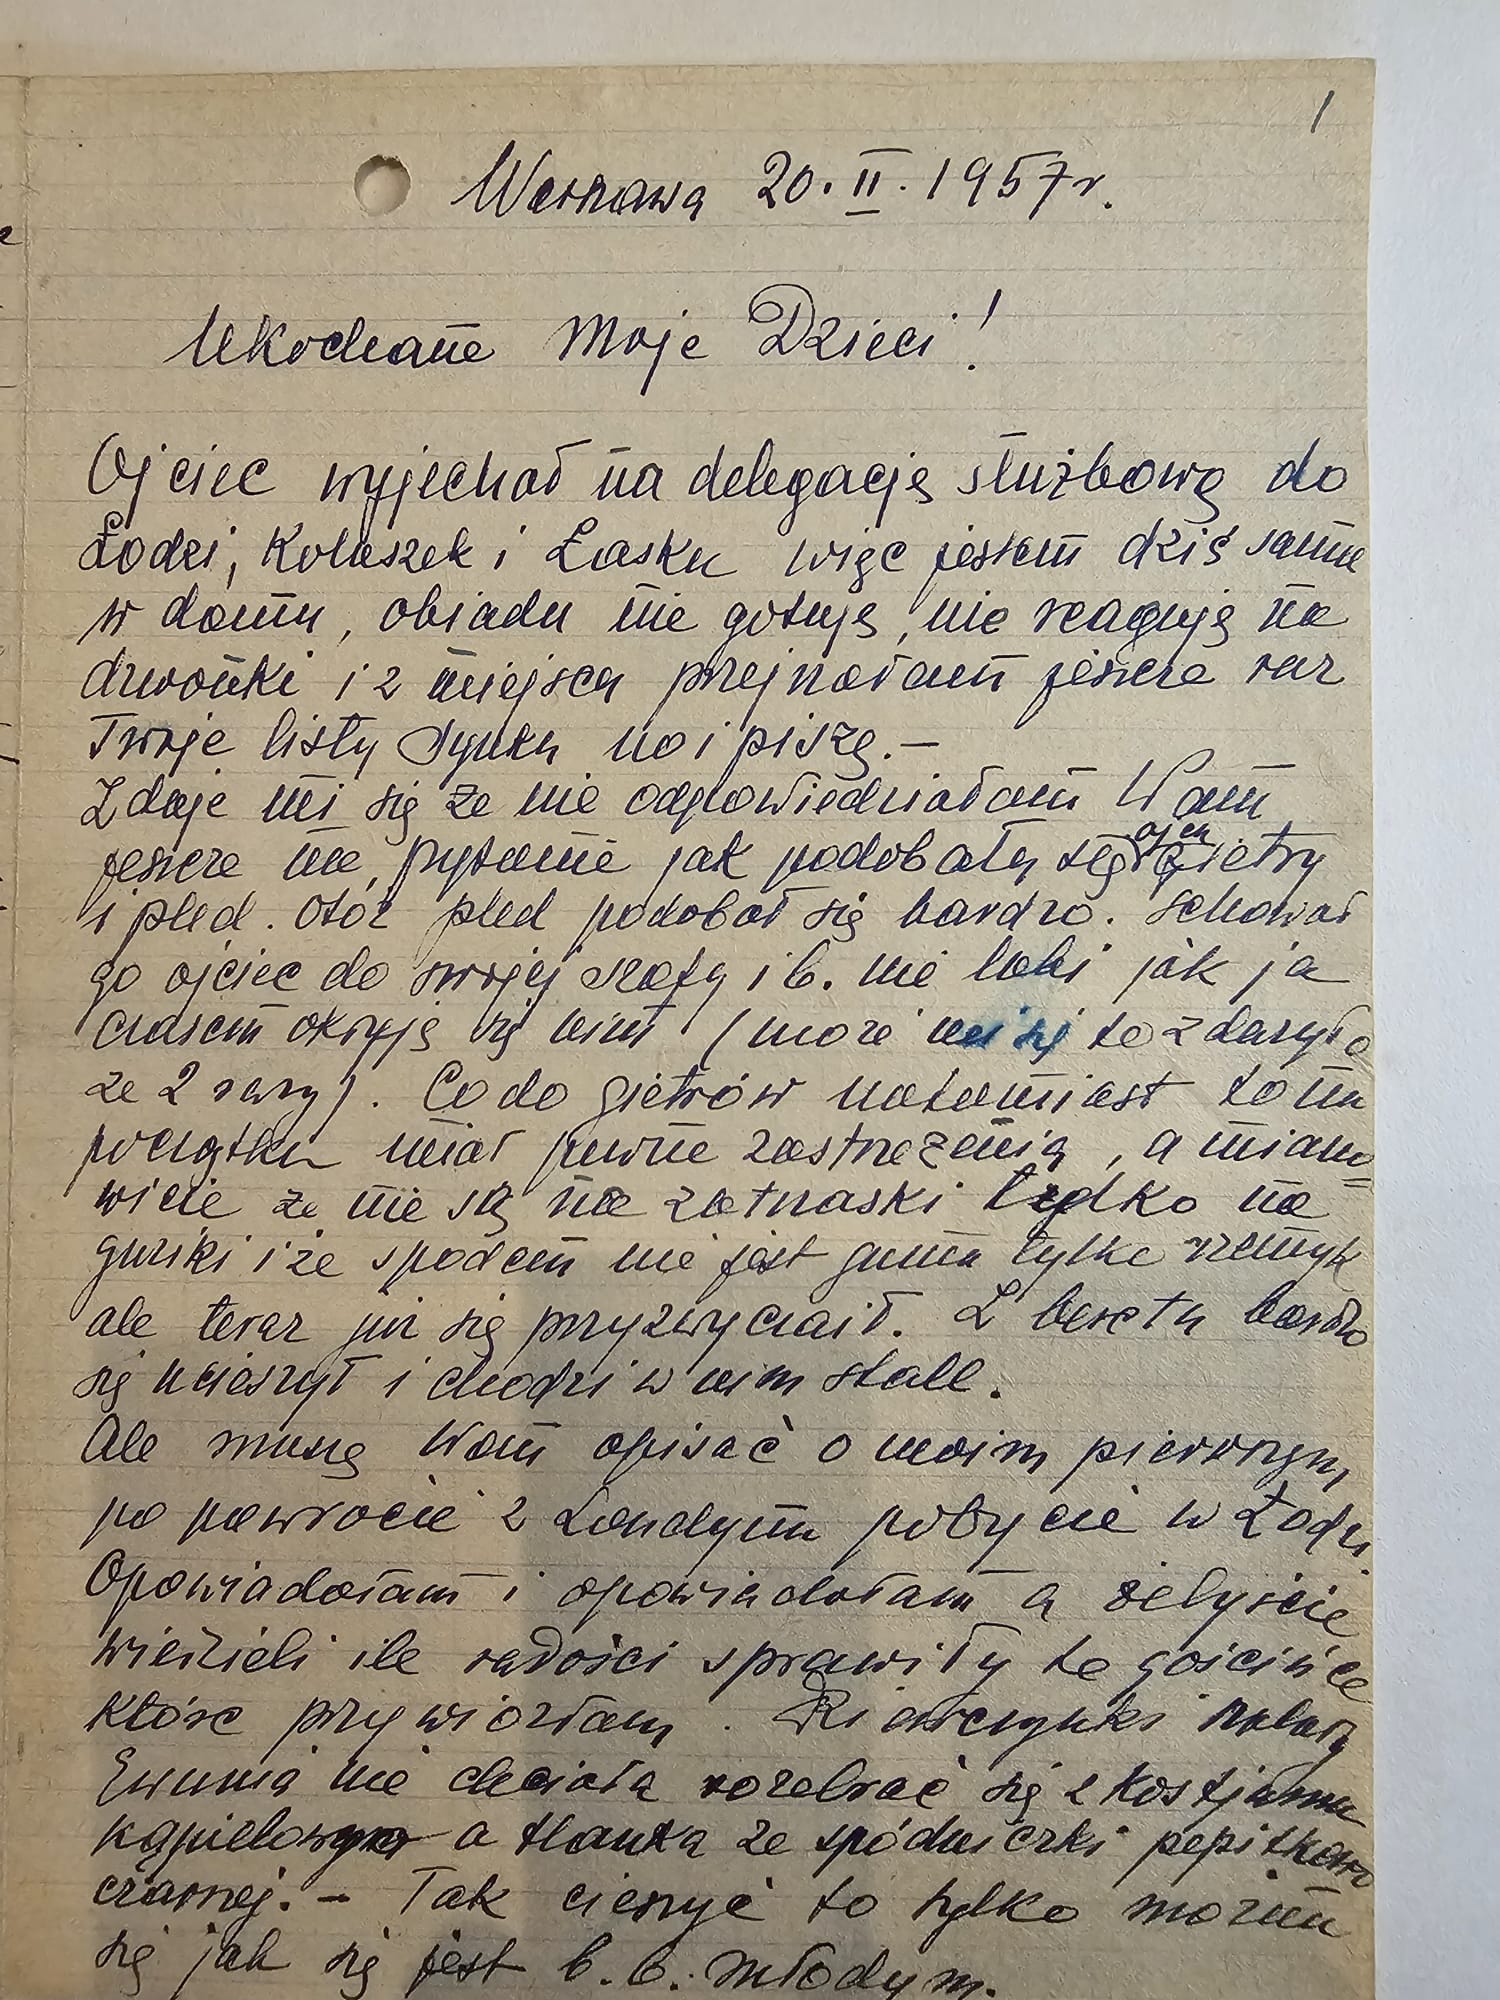 1
Warszawa 20. II. 1957 r.
Ukochane Moje Dzieci!
Ojciec wyjechał na delegację służbową do
Łodzi, Koluszek i Łasku więc jestem dziś sama
w domu, obiadu nie gotuję, nie reaguję na
dzwonki i z miejsca przejrzałam jeszcze raz
Twoje listy Synku no i piszę.-
Zdaje mi się że nie odpowiedziałam Wam
jeszcze na pytanie jak podobały się ojcu gietry
i pled. Otóż pled podobał się bardzo. Schował
go ojciec do swojej szafy i b. nie lubi jak ja
czasem okryję się nim (może mi się to zdarzyło
ze 2 razy). Co do gietrów natomiast to na
początku miał pewne zastrzeżenia, a miano
wicie że nie są na zatrzaski tylko na
guziki i że spodem nie jest guma tylko rzemyk
ale teraz już się przyzwyczaił. Z beretu bardzo
się ucieszył i chodzi w nim stale.
Ale muszę Wam opisać o moim pierwszym,
po powrocie z Londynu pobycie w Łodzi
Opowiadałam i opowiadałam a żebyście
wiedzieli ile radości sprawiły te gościńce
które przywiozłam. Dziewczynki szalały
Ewunia nie chciała rozebrać się z kostjumu
kąpielowego a Hanka ze spódniczki pepitkowo
czarnej. - Tak cieszyć to tylko można
się jak się jest b. b. młodym.